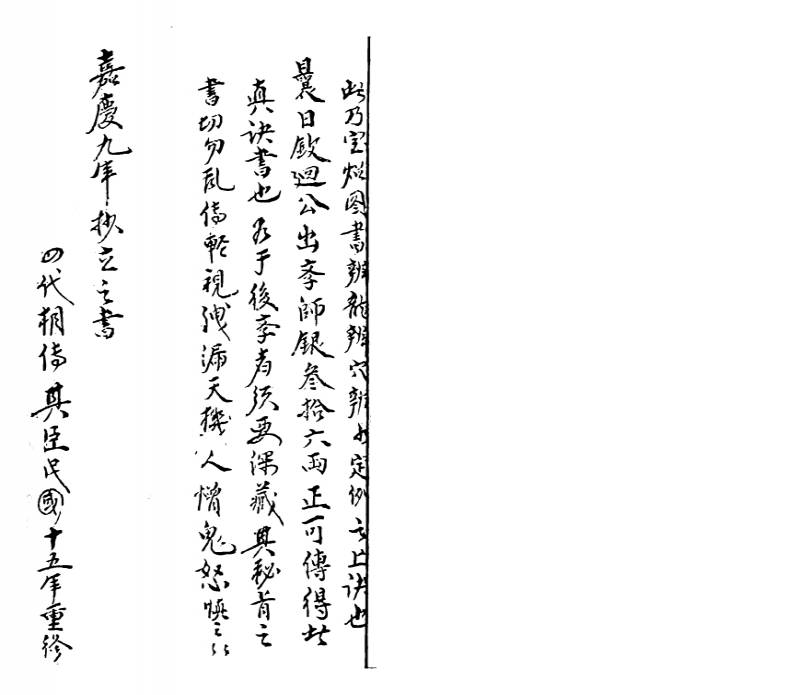 此乃宝照图書辨龍辨穴辨水定例之上訣也
曩日敛廻公出李師銀叁拾六両正可傳得此
真訣書也 若于後李者須要深藏其秘旨之
書切勿乱傳輕視洩漏天機人憎鬼怒慎之
嘉慶九年抄立之書
四代朝傳其臣民國十五年重修